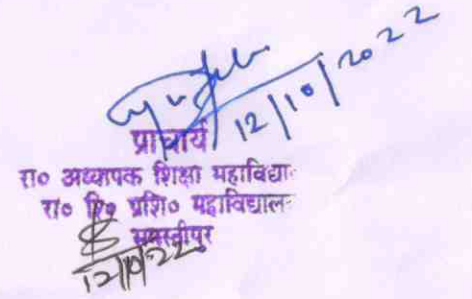 12/10/2022
प्राचार्य
रा० अध्यापक शिक्षा महाविद्या
रा० शि० प्रशि० महाविद्यालय
समस्तीपुर
12/10/22